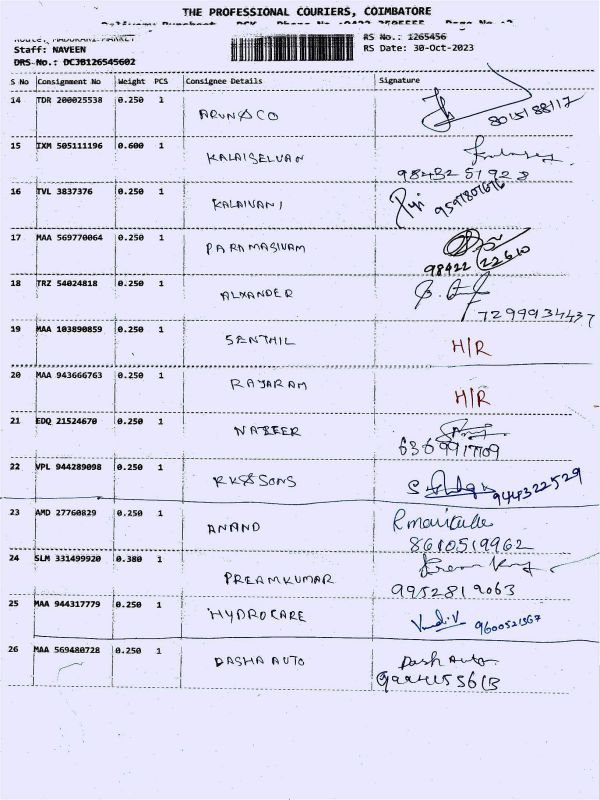 THE PROFESSIONAL COURIERS, COIMBATORE
Staff: NAVEEN
DRS No.: DCJB126545602
RS No.: 1265456
RS Date: 30-Oct-2023
S No Consignment No Weight PCS Consignee Details Signature
14 TDR 200025538 0.250 1 ARUN & CO 8015188117
15 IXM 505111196 0.600 1 KALAISELVAN 98432 51928
16 TVL 3837376 0.250 1 KALAIVANI 9597801676
17 MAA 569770064 0.250 1 PARAMASIVAM 98422 22610
18 TRZ 54024818 0.250 1 ALXANDER 7299934437
19 MAA 103890859 0.250 1 SENTHIL H/R
20 MAA 943666763 0.250 1 RAJARAM H/R
21 EDQ 21524670 0.250 1 NAZEER
22 VPL 944289098 0.250 1 RK & SONS 9444322529
23 AMD 27760829 0.250 1 ANAND 8610519962
24 SLM 331499920 0.380 1 PREAMKUMAR 9952819063
25 MAA 944317779 0.250 1 HYDROCARE 9600521567
26 MAA 569480728 0.250 1 DASHA AUTO Dash Auto